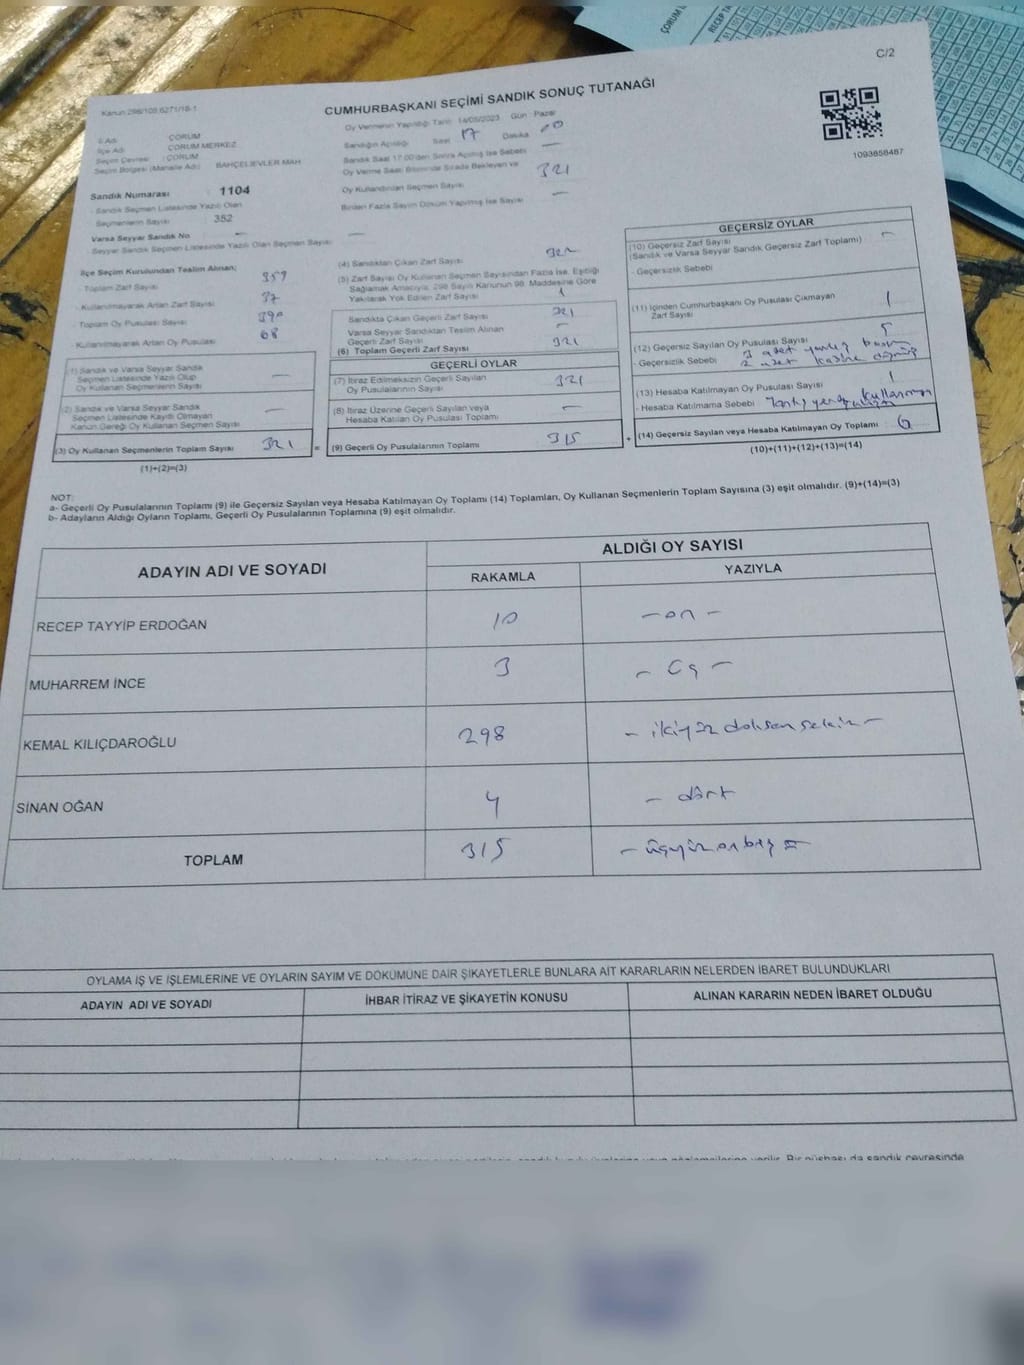 C/2
Kanun:298/105.6271/18-1
CUMHURBAŞKANI SEÇİMİ SANDIK SONUÇ TUTANAĞI
Oy Vermenin Yapıldığı Tarih: 14/05/2023 Gün Pazar
Sandığın Açıldığı Saat 17 Dakika 00
Sandık Saat 17:00'den Sonra Açılmış İse Sebebi —
Oy Verme Saati Bitiminde Sırada Bekleyen ve
Oy Kullandırılan Seçmen Sayısı 321
Birden Fazla Sayım Döküm Yapılmış İse Sayısı —
1093858487
İl Adı ÇORUM
İlçe Adı ÇORUM MERKEZ
Seçim Çevresi : ÇORUM
Seçim Bölgesi (Mahalle Adı) BAHÇELİEVLER MAH
Sandık Numarası : 1104
- Sandık Seçmen Listesinde Yazılı Olan
Seçmenlerin Sayısı : 352
Varsa Seyyar Sandık No —
- Seyyar Sandık Seçmen Listesinde Yazılı Olan Seçmen Sayısı —
İlçe Seçim Kurulundan Teslim Alınan;
- Toplam Zarf Sayısı 359
- Kullanılmayarak Artan Zarf Sayısı 37
- Toplam Oy Pusulası Sayısı 390
- Kullanılmayarak Artan Oy Pusulası 68
(1) Sandık ve Varsa Seyyar Sandık
Seçmen Listesinde Yazılı Olup
Oy Kullanan Seçmenlerin Sayısı —
(2) Sandık ve Varsa Seyyar Sandık
Seçmen Listesinde Kayıtlı Olmayan
Kanun Gereği Oy Kullanan Seçmen Sayısı —
(3) Oy Kullanan Seçmenlerin Toplam Sayısı 321 =
(1)+(2)=(3)
(4) Sandıktan Çıkan Zarf Sayısı 322
(5) Zarf Sayısı Oy Kullanan Seçmen Sayısından Fazla İse, Eşitliği
Sağlamak Amacıyla, 298 Sayılı Kanunun 98. Maddesine Göre
Yakılarak Yok Edilen Zarf Sayısı 1
Sandıkta Çıkan Geçerli Zarf Sayısı 321
Varsa Seyyar Sandıktan Teslim Alınan
Geçerli Zarf Sayısı —
(6) Toplam Geçerli Zarf Sayısı 321
GEÇERLİ OYLAR
(7) İtiraz Edilmeksizin Geçerli Sayılan
Oy Pusulalarının Sayısı 321
(8) İtiraz Üzerine Geçerli Sayılan veya
Hesaba Katılan Oy Pusulası Toplamı —
(9) Geçerli Oy Pusulalarının Toplamı 315 +
GEÇERSİZ OYLAR
(10) Geçersiz Zarf Sayısı —
(Sandık ve Varsa Seyyar Sandık Geçersiz Zarf Toplamı)
- Geçersizlik Sebebi
(11) İçinden Cumhurbaşkanı Oy Pusulası Çıkmayan
Zarf Sayısı 1
(12) Geçersiz Sayılan Oy Pusulası Sayısı 5
- Geçersizlik Sebebi 3 adet yanlış
2 adet
(13) Hesaba Katılmayan Oy Pusulası Sayısı 1
- Hesaba Katılmama Sebebi
(14) Geçersiz Sayılan veya Hesaba Katılmayan Oy Toplamı 6
(10)+(11)+(12)+(13)=(14)
NOT:
a- Geçerli Oy Pusulalarının Toplamı (9) ile Geçersiz Sayılan veya Hesaba Katılmayan Oy Toplamı (14) Toplamları, Oy Kullanan Seçmenlerin Toplam Sayısına (3) eşit olmalıdır. (9)+(14)=(3)
b- Adayların Aldığı Oyların Toplamı, Geçerli Oy Pusulalarının Toplamına (9) eşit olmalıdır.
ADAYIN ADI VE SOYADI
ALDIĞI OY SAYISI
RAKAMLA YAZIYLA
RECEP TAYYİP ERDOĞAN 10 — on —
MUHARREM İNCE 3 — üç —
KEMAL KILIÇDAROĞLU 298 — ikiyüz doksan sekiz —
SİNAN OĞAN 4 — dört
TOPLAM 315 — üçyüz on beş =
OYLAMA İŞ VE İŞLEMLERİNE VE OYLARIN SAYIM VE DÖKÜMÜNE DAİR ŞİKAYETLERLE BUNLARA AİT KARARLARIN NELERDEN İBARET BULUNDUKLARI
ADAYIN ADI VE SOYADI İHBAR İTİRAZ VE ŞİKAYETİN KONUSU ALINAN KARARIN NEDEN İBARET OLDUĞU
verilir. Bir nüshası da sandık çevresinde